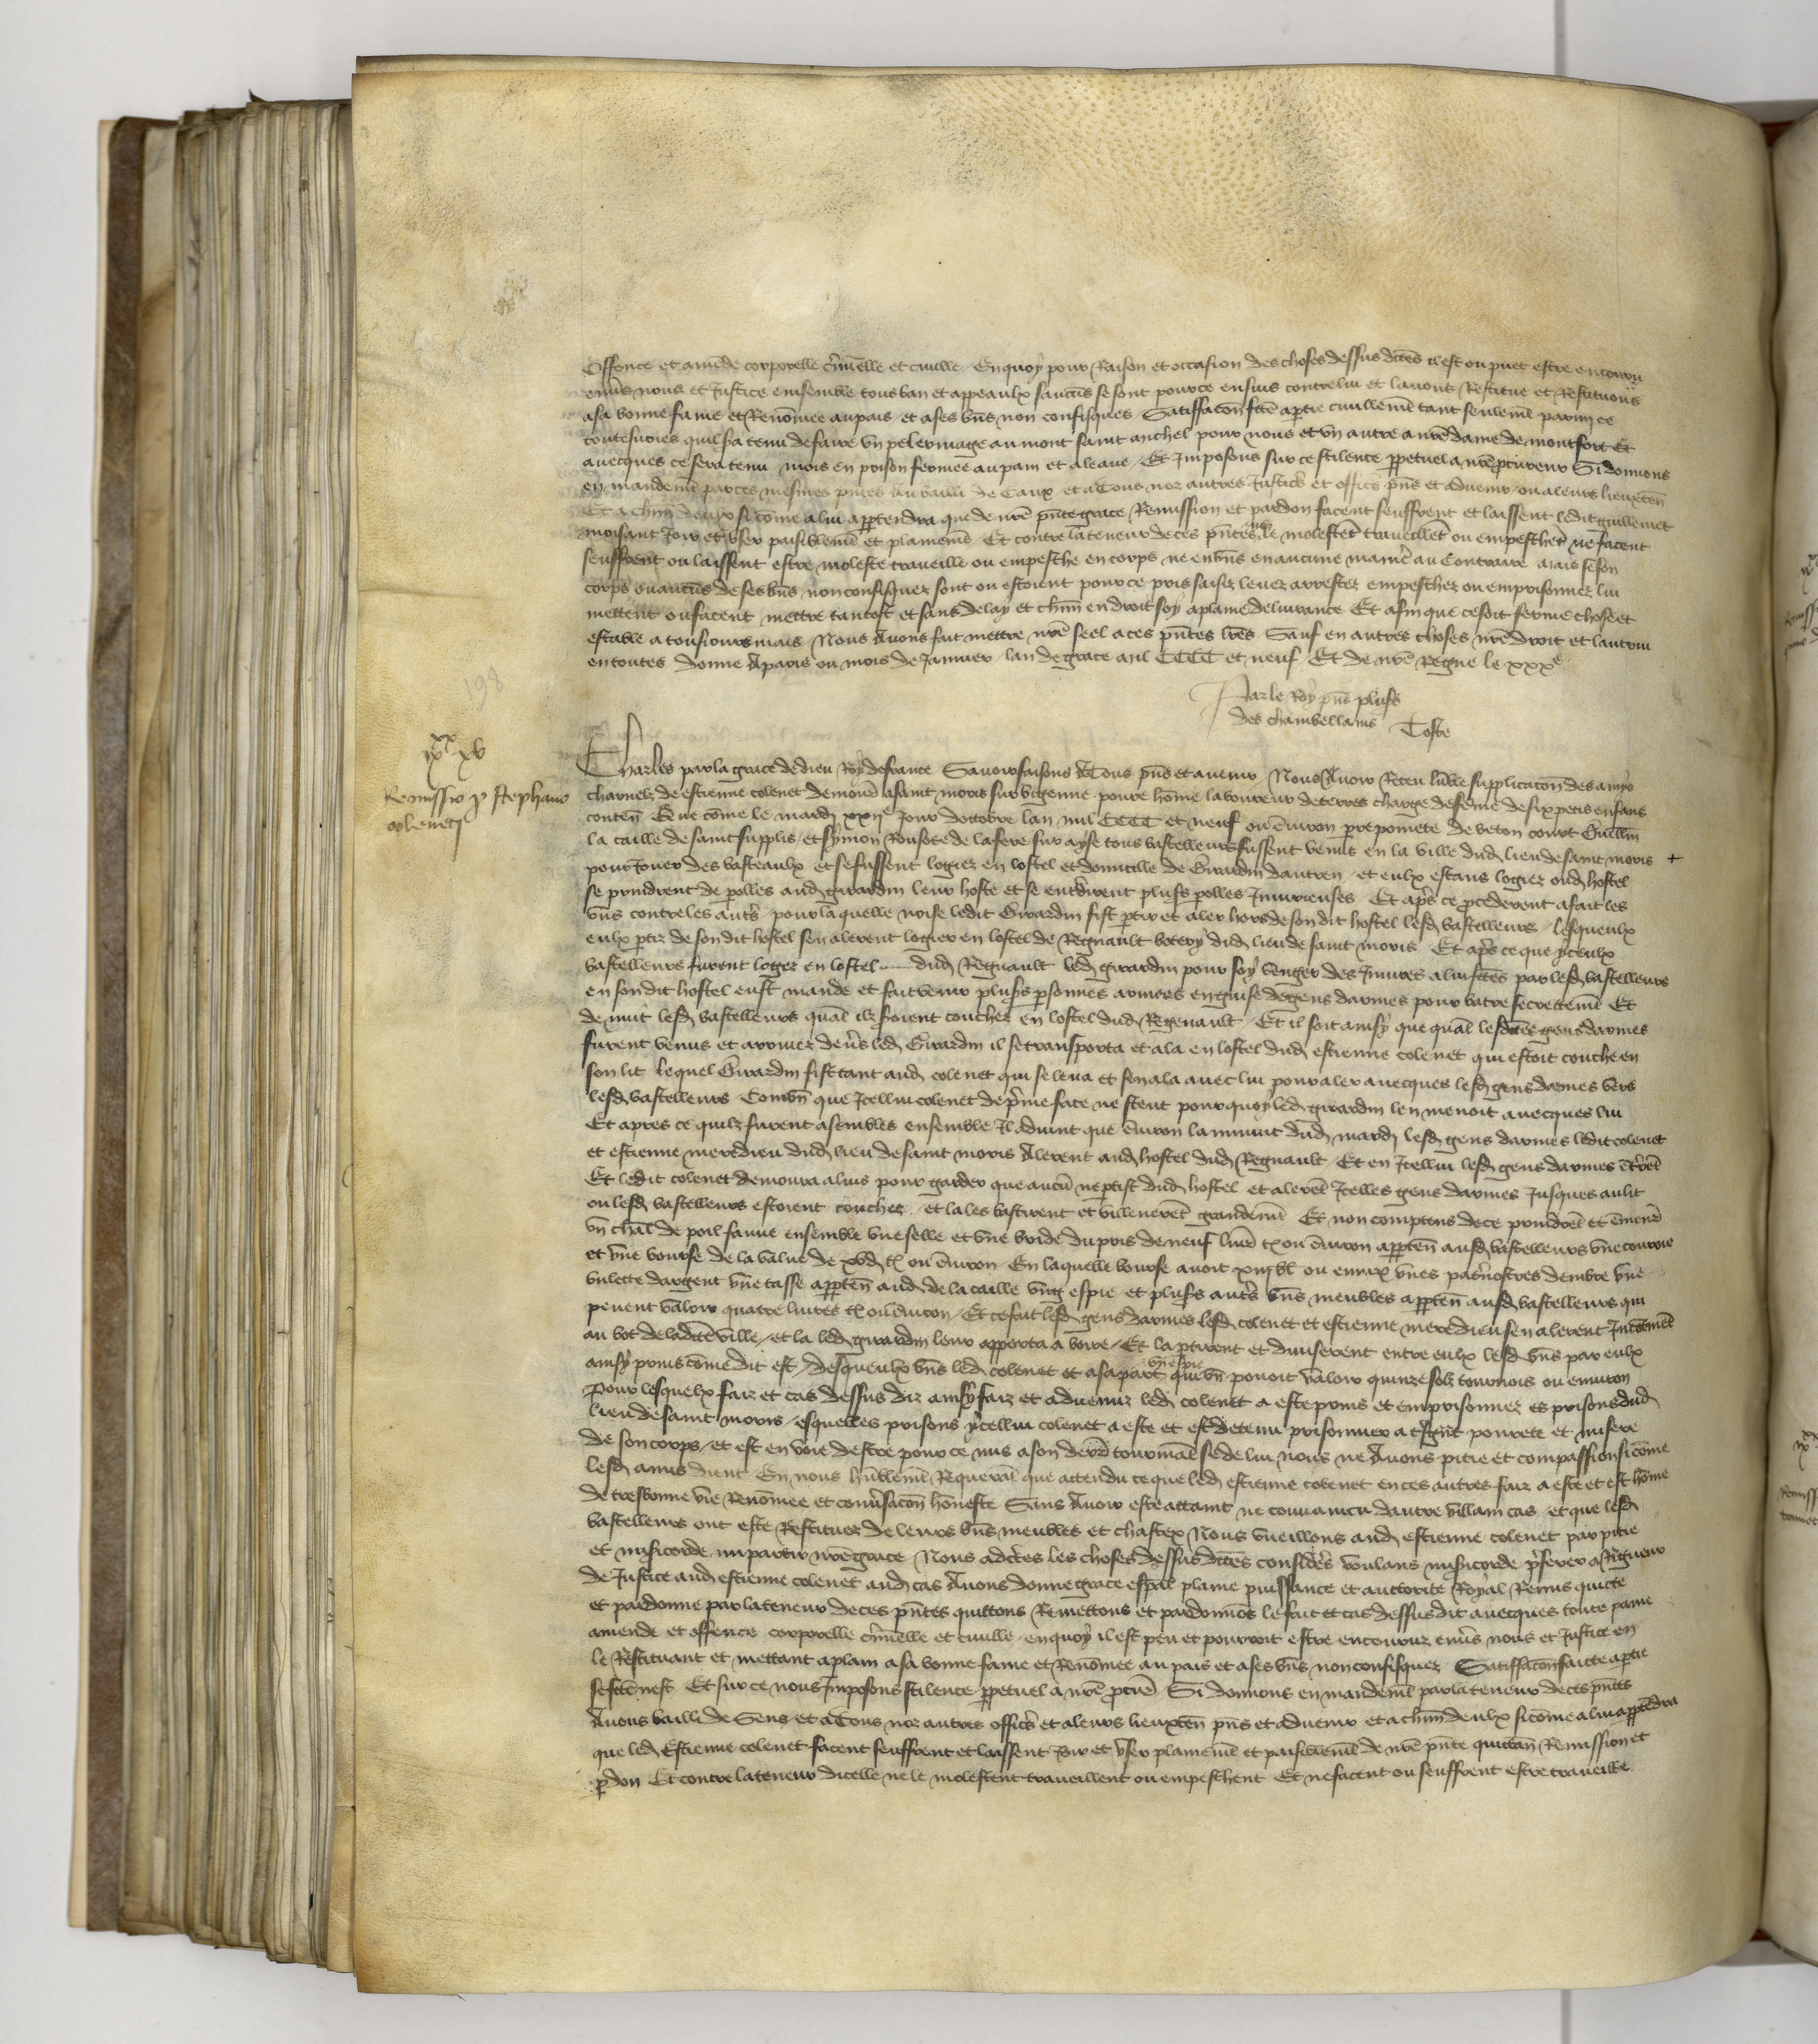 offence et amēde corporelle cīmelle et ciuille En quoy pour Raison et occasion des choses dessus dc̄es il est ou puet estre encouru
enuers nous et Justice ensemble tous ban et appeaulx saucūs se sont pour ce ensuis contre lui et lauons Restitue et Restituons
a sa bonne fame et Renōmee au pais et a ses bn̄s non confisques Satisfacōn fc̄e a ptie ciuillemēt tant seulemēt parmi ce
toutesuoies quil sa tenu de faire vn pelerinage au mont saint michel pour nous et vn autre a nrē dame de montfort Et
auecques ce sera tenu mois en prison fermee au pain et a leaue Et Imposons sur ce silence ppetuel a nrē pcureur Si donnons
en mandemēt par ces mesmes pn̄tes au bailli de Caux et a Tous noz autres Justicīers et officīers pn̄s et aduenir ou a leurs lieuxten̄
Et a chūn deulx si cōme a lui apptendra que de nrē pn̄te grace Remission et pardon facent seuffrent et laissent ledit guillemet
moisant Joir et vser paisiblemēt et plainemēt Et contre la teneur de ces pn̄tes ne le molestēt trauaillēt ou empeschēt ne facent
seuffrent ou laissent estre moleste trauaille ou empesche en corps ne en bn̄s en aucune manīe au contraire mais se son
corps ou aucūs de ses bn̄s non confisquez sont ou estoient pour ce pris saisiz leuez arrestez empeschez ou emprisonnez lui
mettent ou facent mettre tantost et sans delay et chūn en droit soy a plaine deliurance Et afin que ce soit ferme chose et
estable a tousiours mais Nous Auons fait mettre nrē seel a ces pn̄tes lrēs Sauf en autres choses nrē droit et lautrui
en toutes donne A paris ou mois de Januier lan de grace mil CCCC et neuf Et de nrē Regne le xxxe
Par le Roy pn̄s plus̄s
des chambellans Toste
198
ixxx xv
Remissio p Stephano
colenet
Charles par la grace de dieu Roy de france Sauoir faisons A Tous pn̄s et auenir Nous Auoir Receu lūble supplicacōn des amys
charnelz de estienne colenet demour̄ a saint moris sur vigenne poure hōme laboureur de terres charge de fēme de six petis enfans
conten̄ Que cōme le mardj xxije Jour doctobre lan mil CCCC et neuf ou ēuiron perrepomete de breton court Guillm̄
la caille de saint supplis et Symon Rousete de la fere sur ayse tous bastelleurs fussent venus en la ville dud lieu de saint moris +
pour Jouer des basteaulx et se fussent logiez en lostel et domicille de Girardin dautren et eulx estans logiez oud hostel
se prindrent de polles aud girardin leur hoste et se entdirent plus̄s polles Jniurieuses Et apr̄s ce pcederent a fait les
vns contre les autr̄s pour laquelle noise ledit Girardin fist ptir et aler hors de son dit hostel lesd bastelleurs lesqueulx
eulx ptiz de son dit hostel sen alerent logier en lostel de Regnault bretery dud lieu de saint moris Et apr̄s ce que yceulx
bastelleurs furent logez en lostel dud Regnault led girardin pour soy venger des Jniures a lui fc̄es par lesd bastelleurs
en son dit hostel eust mande et fait venir plus̄s psonnes armees en guise de gens darmes pour batre secretemēt Et
de nuit lesd bastelleurs quāt ilz seroient couchez en lostel dud Regnault Et il soit ainsy que quāt lesd gens darmes
furent venus et arriuez deuers led Girardin il se transporta et ala en lostel dud estienne colenet qui estoit couche en
son lit lequel Girardin fist tant aud colenet qui se leua et sen ala auec lui pour aler auecques lesd gens darmes vers
lesd bastelleurs Combīn que Jcellui colenet de prīme face ne sceut pour quoy led girardin len menoit auecques lui
Et apres ce quilz furent asembles ensemble Jl aduint que ēuiron la minuit dud mardj lesd gens darmes ledit colenet
et estienne meredieu dud lieu de saint moris Alerent aud hostel dud Regnault Et en Jcellui lesd gens darmes ētrēt
Et ledit colenet demoura a luis pour garder que aucū ne ptist dud hostel et alerēt Jcelles gens darmes Jusques au lit
ou lesd bastelleurs estoient couchez et la les batirent et villenerēt grandemēt Et non comptens de ce prindrēt et ēmenēt
vn chāl de poil fauue ensemble vne selle et vne bride du pris de neuf liur̄ t ou ēuiron apptēn ausd bastelleurs vne couroie
et vne bourse de la value de xv d t ou ēuiron En laquelle bourse auoit xiiij bl ou enuirō vnes patr̄nostres dembre vne
bulette dargent vne tasse apptēn aud de la caille vng espie et plus̄s autr̄s bn̄s meubles apptēn ausd bastelleurs qui
peuent valoir quatre liures t ou ēuiron Et ce fait lesd gens darmes lesd colenet et estienne meredieu sen alerent Jncōtinēt
au bot de ladc̄e ville et la led girardin leur apporta a boire Et la ptirent et diuiserent entre eulx lesd bn̄s par eulx
ainsy prins cōme dit est Desqueulx bn̄s led colenet ot a sa part vn espie que vn pouoit valoir quinze solz tournois ou enuiron
Pour lesquelx faiz et cas dessus diz ainsy faiz et aduenuz led colenet a este prins et emprisonnez es prisons dud
lieu de saint moris esquelles prisons ycellui colenet a este et est detenu prisonnier a tsgn̄t pourete et misere
de son corps et est en voie destre pour ce mis a son der̄ tourmāt se de lui nous ne Auons pitie et compassion si cōme
lesd amis dient En nous hūblemēt Requerāt que attendu ce que led estienne colenet en ces autres faiz a este et est hōme
de tresbonne vie Renōmee et conusacōn hōneste Sans Auoir este attaint ne conuaincu dautre villain cas et que lesd
bastelleurs ont este Restituez de leurs bn̄s meubles et chastex Nous vueillons aud estienne colenet par pitie
et misicorde impartir nrē grace Nous adctes les choses dessus dc̄es consideres voulans misicorde pserer a Rigueur
de Justice aud estienne colenet aud cas Auons donne grace esp̄al plaine puissance et auctorite Royal Remis quicte
et pardonne par la teneur de ces pn̄tes quittons Remettons et pardonnōs le fait et cas dessus dit auecques toute paine
amende et offence corporelle cīmelle et ciuille en quoy il est peu et pourroit estre encouruz enuers nous et Justice en
le Restituant et mettant a plain a sa bonne fame et Renōmee au pais et a ses bn̄s non confisquez Satisfacōn faicte a ptie
se fc̄e nest Et sur ce nous Jmposons silence ppetuel a nrē pcur̄ Si donnons en mandemēt par la teneur de ces pn̄tes
Auons bailli de Sens et a Tous noz autres officīers et a leurs lieuxten̄ pn̄s et aduenir et a chūn deulx si cōme a lui apptēdra
que led Estienne colenet facent seuffrent et laissent Joir et vser plainemēt et paisiblemēt de nrē pn̄te quittan̄ Remission et
pdon Et contre la teneur dicelle ne le molestent trauaillent ou empeschent Et ne facent ou seuffrent estre trauaille